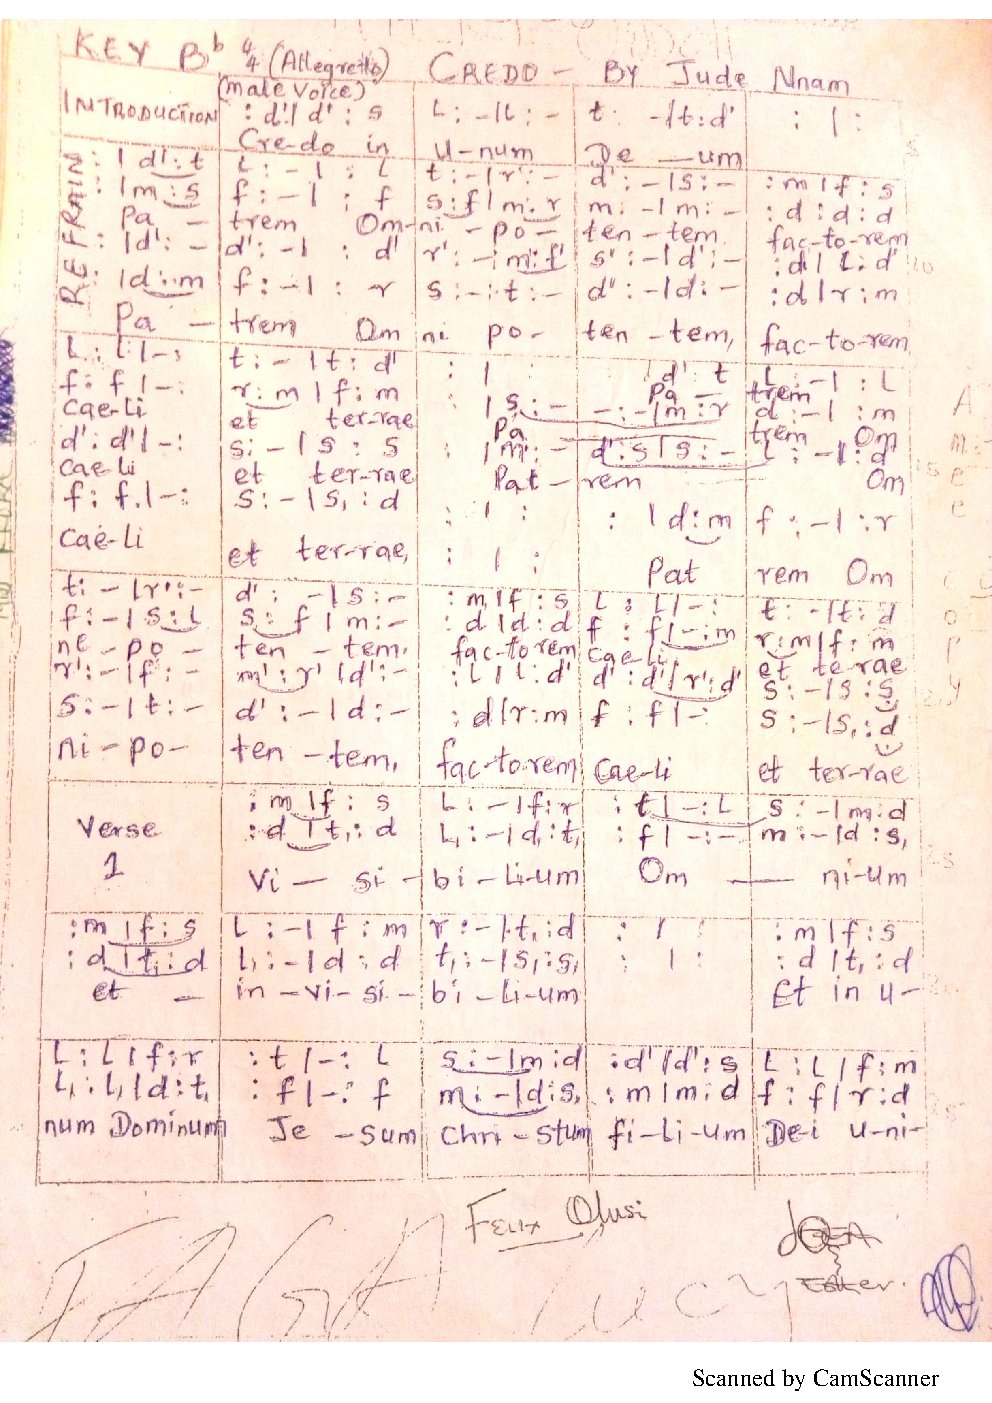 KEY Bb 4/4 (Allegretto) CREDO - BY Jude Nnam
(male voice)
INTRODUCTION : d'| d' : s L : -|L : - t : -|t : d' : | :
Cre-do in U-num De — um
REFRAIN
: | d' : t L : - | : L t : - | r' : - d' : - | s : - : m | f : s
: | m : s f : - | : f s : f | m : r m : - | m : - : d : d : d
Pa - trem Om-ni - po - ten - tem fac-to-rem
: | d' : - d' : - | : d' r' : - | m' : f' s' : - | d' : - : d | L : d'
: | d : m f : - | : r s : - : t : - d' : - | d : - : d | r : m
Pa - trem Om ni po - ten - tem, fac-to-rem
L : L | - : t : - | t : d' : | : d' : t L : - | : L
Pa - trem
f : f | - : r : m | f : m : | s : - - : - | m : r d : - | : m
Cae-li et ter-rae Pa trem Om
d' : d' | - : s : - | s : s : | m' : - d' : s | s : - L : - | : d'
Cae-li et ter-rae Pat - rem Om
f : f | - : s : - | s, : d : | : : | d : m f : - | : r
Cae-li et ter-rae, : | : Pat rem Om
t : - | r' : - d' : - | s : - : m | f : s L : L | - : t : - | t : d
f : - | s : L s : f | m : - : d | d : d f : f | - : m r : m | f : m
ne - po - ten - tem, fac-to rem Cae-li et te-rae
r' : - | f : - m' : r' | d' : - : L | L : d' d' : d' | r' : d' s : - | s : s
s : - | t : - d' : - | d : - : d | r : m f : f | - : s : - | s, : d
ni - po - ten - tem, fac-to-rem Cae-li et ter-rae
: m | f : s L : - | f : r : t | - : L s : - | m : d
Verse : d | t, : d L, : - | d : t, : f | - : - m : - | d : s,
1 Vi — si - bi - Li-um Om — ni-um
: m | f : s L : - | f : m r : - | t, : d : | : : m | f : s
: d | t, : d L, : - | d : d t, : - | s, : s, : | : : d | t, : d
et — in - vi - si - bi - Li-um Et in u-
L : L | f : r : t | - : L s : - | m : d : d' | d' : s L : L | f : m
L, : L, | d : t, : f | - : f m : - | d : s, : m | m : d f : f | r : d
num Dominum Je - sum Chri - stum fi-Li-um De-i u-ni-
Felix Olusi
Esther.
Scanned by CamScanner